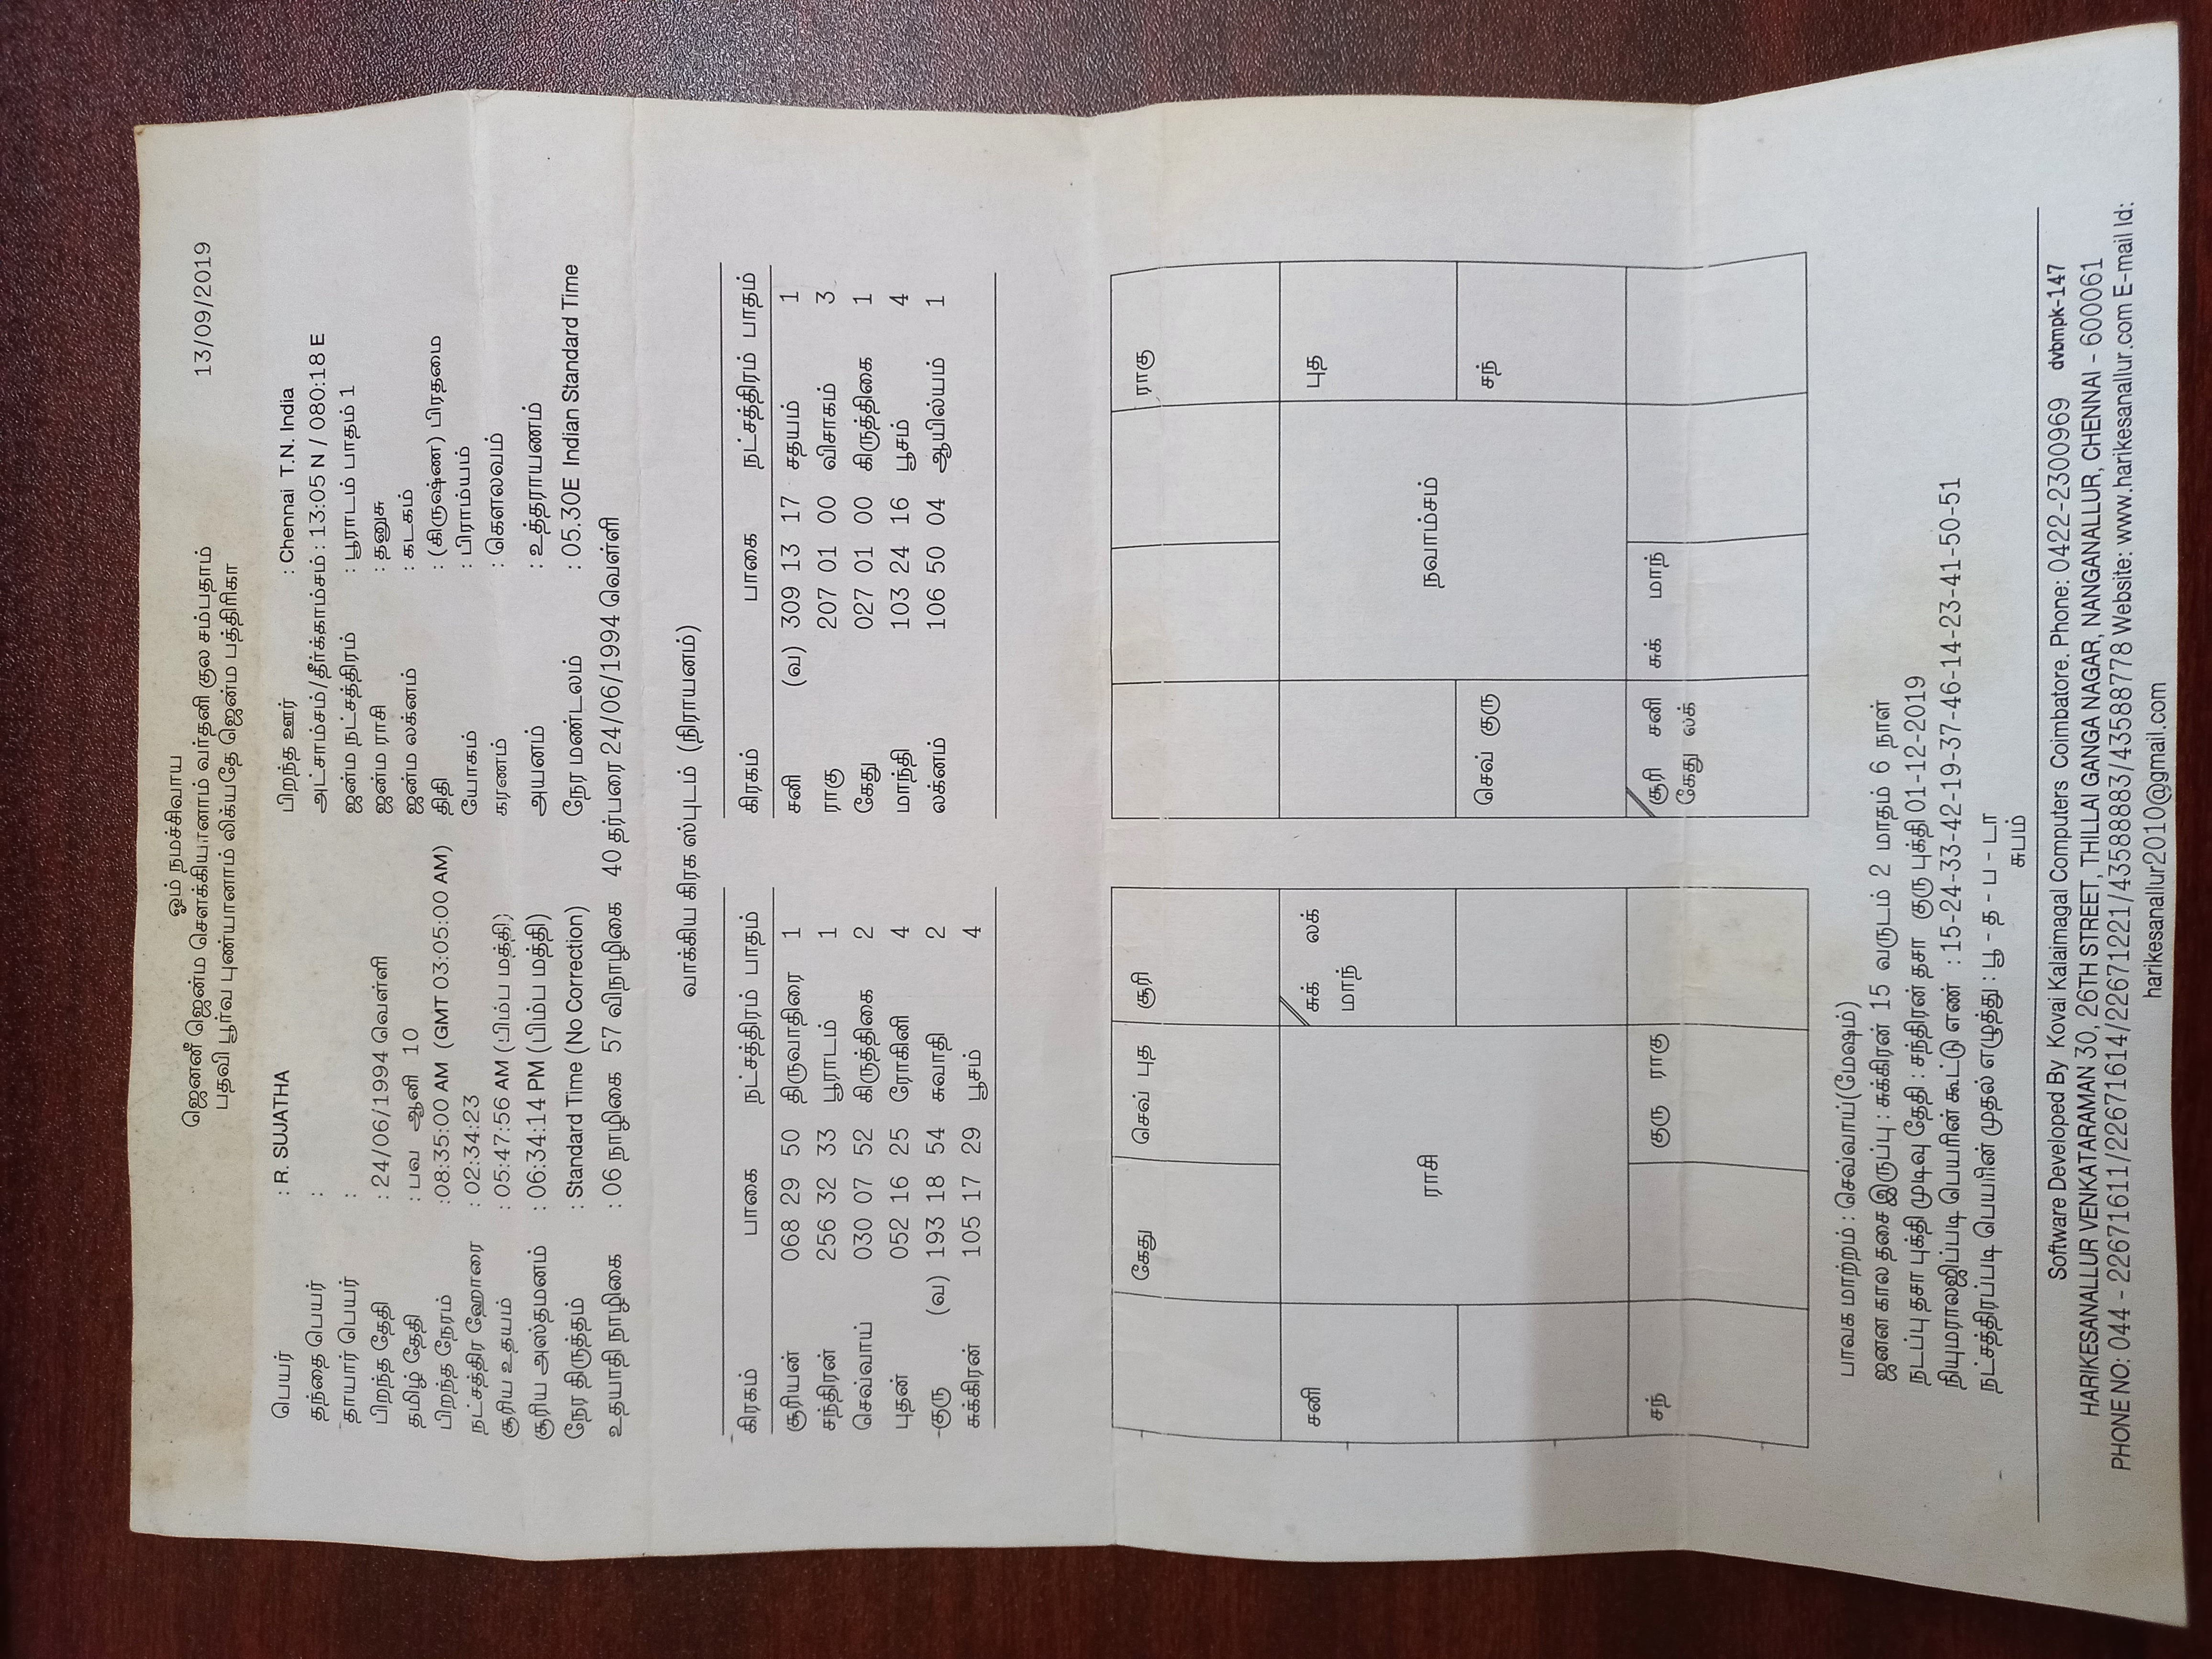 ஓம் நமச்சிவாய
ஜெனனீ ஜென்ம சௌக்கியானாம் வர்தனி குல சம்பதாம்
பதவி பூர்வ புண்யானாம் லிக்யதே ஜென்ம பத்திரிகா
13/09/2019
பெயர் : R. SUJATHA
பிறந்த ஊர் : Chennai T.N. India
தந்தை பெயர் :
அட்சாம்சம்/தீர்க்காம்சம் : 13:05 N / 080:18 E
தாயார் பெயர் :
ஜன்ம நட்சத்திரம் : பூராடம் பாதம் 1
பிறந்த தேதி : 24/06/1994 வெள்ளி
ஜன்ம ராசி : தனுசு
தமிழ் தேதி : பவ ஆனி 10
ஜன்ம லக்னம் : கடகம்
பிறந்த நேரம் :08:35:00 AM (GMT 03:05:00 AM)
திதி : (கிருஷ்ண) பிரதமை
நட்சத்திர ஹோரை : 02:34:23
யோகம் : பிராம்யம்
சூரிய உதயம் : 05:47:56 AM (பிம்ப மத்தி)
கரணம் : கௌலவம்
சூரிய அஸ்தமனம் : 06:34:14 PM (பிம்ப மத்தி)
அயனம் : உத்தராயணம்
நேர திருத்தம் : Standard Time (No Correction)
நேர மண்டலம் : 05.30E Indian Standard Time
உதயாதி நாழிகை : 06 நாழிகை 57 விநாழிகை 40 தர்பரை 24/06/1994 வெள்ளி
வாக்கிய கிரக ஸ்புடம் (நிராயனம்)
கிரகம் பாகை நட்சத்திரம் பாதம்
சூரியன் 068 29 50 திருவாதிரை 1
சந்திரன் 256 32 33 பூராடம் 1
செவ்வாய் 030 07 52 கிருத்திகை 2
புதன் 052 16 25 ரோகினி 4
குரு (வ) 193 18 54 சுவாதி 2
சுக்கிரன் 105 17 29 பூசம் 4
கிரகம் பாகை நட்சத்திரம் பாதம்
சனி (வ) 309 13 17 சதயம் 1
ராகு 207 01 00 விசாகம் 3
கேது 027 01 00 கிருத்திகை 1
மாந்தி 103 24 16 பூசம் 4
லக்னம் 106 50 04 ஆயில்யம் 1
கேது செவ் புத சூரி
சனி சுக் லக்
மாந்
ராசி
சந் குரு ராகு
ராகு
புத
நவாம்சம்
செவ் குரு சந்
சூரி சனி சுக் மாந்
கேது லக்
பாவக மாற்றம் : செவ்வாய்(மேஷம்)
ஜனன கால தசை இருப்பு : சுக்கிரன் 15 வருடம் 2 மாதம் 6 நாள்
நடப்பு தசா புக்தி முடிவு தேதி : சந்திரன் தசா குரு புக்தி 01-12-2019
நியுமராலஜிப்படி பெயரின் கூட்டு எண் : 15-24-33-42-19-37-46-14-23-41-50-51
நட்சத்திரப்படி பெயரின் முதல் எழுத்து : பூ - த - ப - டா
சுபம்
Software Developed By Kovai Kalaimagal Computers Coimbatore. Phone: 0422-2300969 dvbmpk-147
HARIKESANALLUR VENKATARAMAN 30, 26TH STREET, THILLAI GANGA NAGAR, NANGANALLUR, CHENNAI - 600061
PHONE NO: 044 - 22671611/22671614/22671221/43588883/43588778 Website: www.harikesanallur.com E-mail Id:
harikesanallur2010@gmail.com